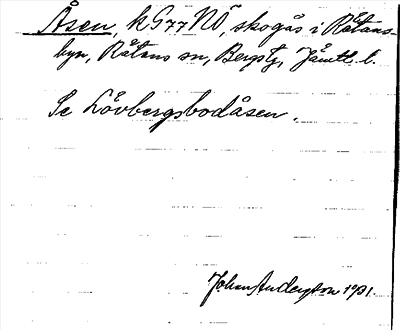 Åsen, kG77NÖ, skogås i Rätans-
byn, Rätans sn, Bergs tg, Jämtl. l.
Se Lövbergsbodåsen.
Johan Andersson 1931.